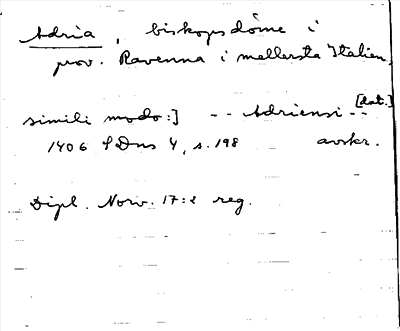 Adria, biskopsdöme i
prov. Ravenna i mellersta Italien.
[dat.]
simili modo:] -- Adriensi --
1406 SDns 4, s. 198 avskr.
Dipl. Norv. 17:2 reg.